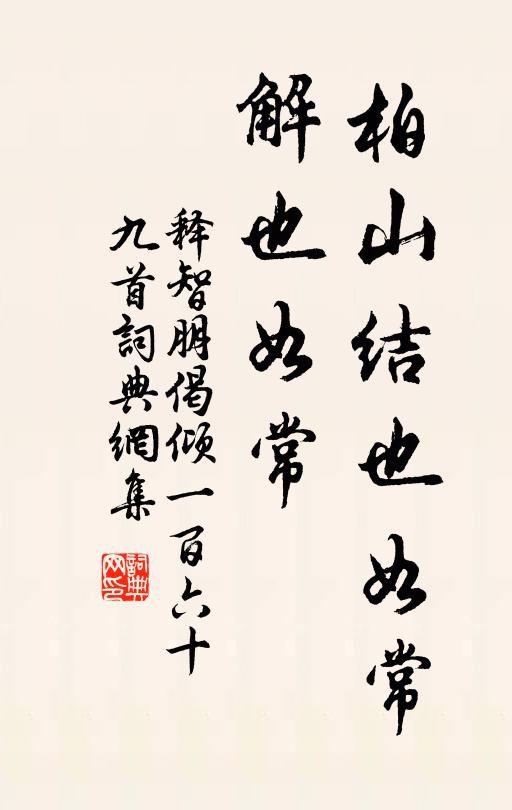 柏山结也如常
解也如常
释智朋偈倾一百六十
九首詞典網集
詞典
网印